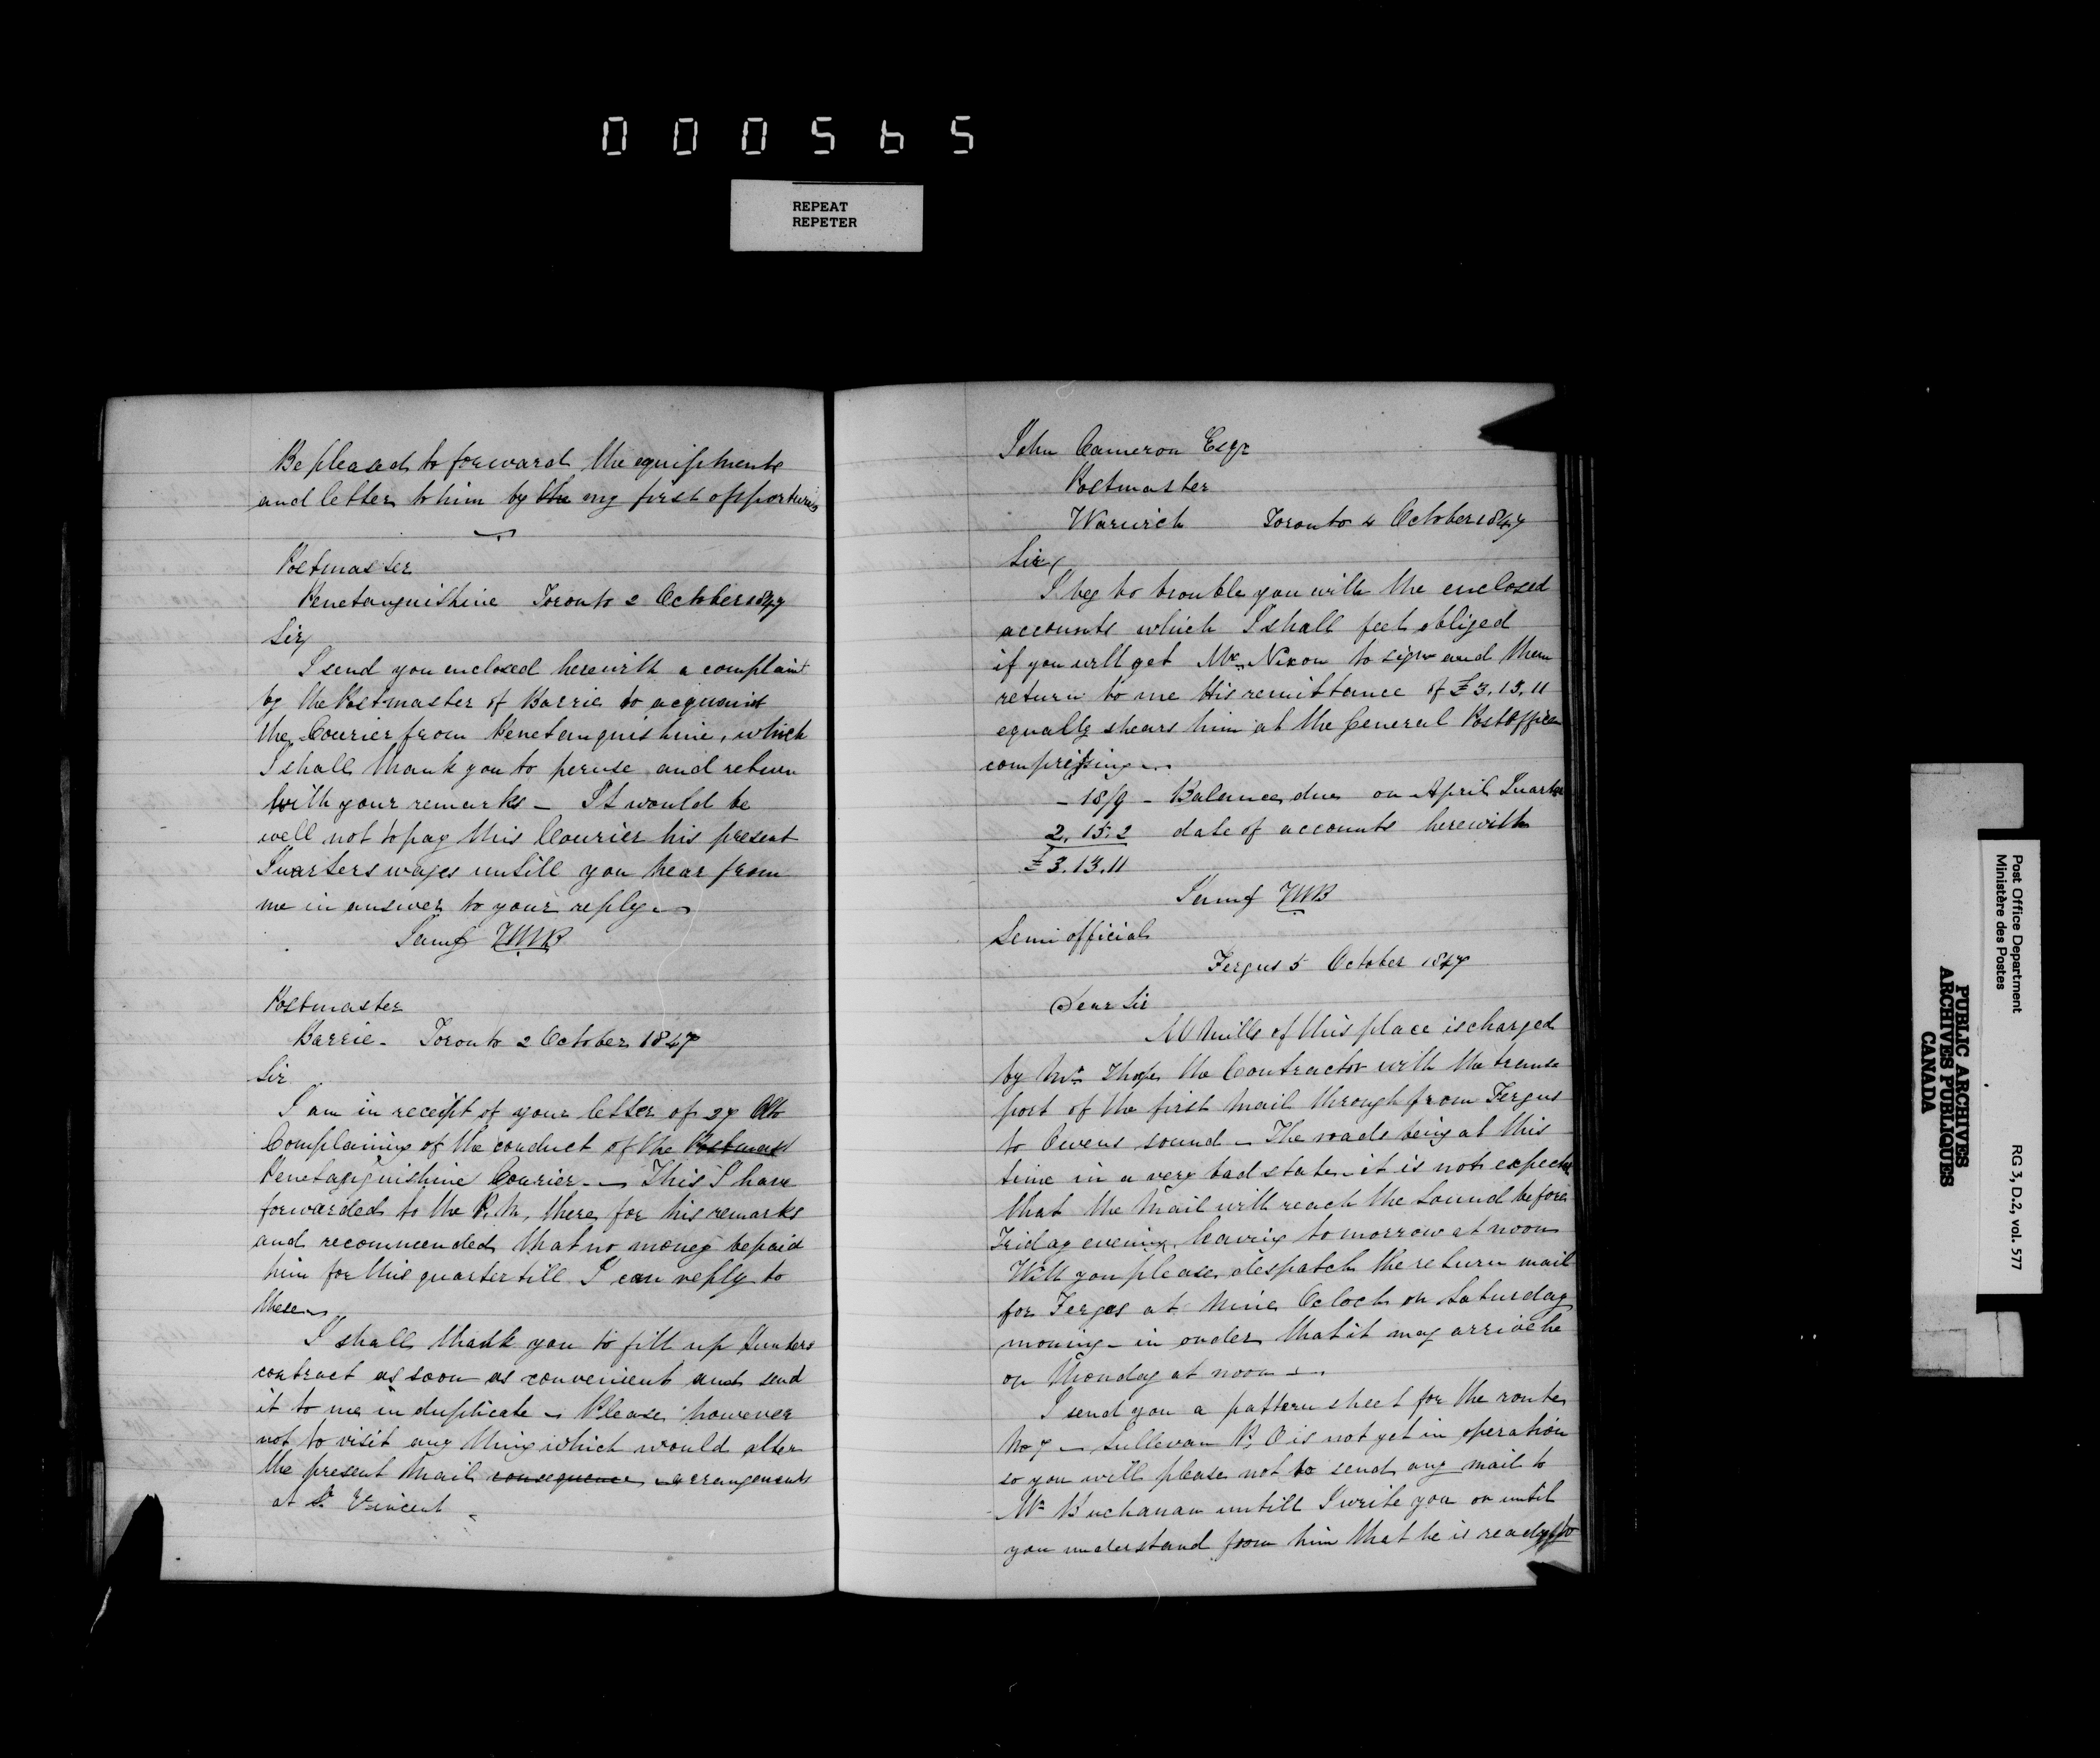 000565
REPEAT
REPETER
Be pleased to forward the equipments
and letter to him by the my first opportunity
Postmaster
Penetanguishine Toronto 2 October 1847
Sir
I send you enclosed herewith a complaint
by the Postmaster of Barrie to acquaint
the Courier from Penetanguishine, which
I shall thank you to peruse and return
with your remarks - It would be
well not to pay this Courier his present
Quarters wages untill you hear from
me in answer to your reply
Postmaster
Barrie - Toronto 2 October 1847
Sir
I am in receipt of your letter of 27 Ulto
Complaining of the conduct of the Postmast
Penetanguishine Courier - This I have
forwarded to the P.M. there for his remarks
and recommended that no money be paid
him for this quarter till I can reply to
these
I shall thank you to fill up Hunters
contract as soon as convenient and send
it to me in duplicate - Please however
not to visit any thing which would alter
the present Mail consequence arrangements
at St Vincent
John Cameron Esqr
Postmaster
Warwick Toronto 4 October 1847
Sir
I beg to trouble you with the enclosed
accounts which I shall feel obliged
if you will get Mr Nixon to sign and then
return to me His remittance of £3.13.11
equally shears him at the General Post Office
comprising
- 18/9 - Balance due on April Quarter
2.15.2 date of accounts herewith
£3.13.11
Semi official
Fergus 5 October 1847
Dear Sir
of this place is charged
by Mr the Contractor with the trans
port of the first Mail through from Fergus
to Owens sound - The roads being at this
time in a very bad state - it is not expected
that the Mail will reach the Sound before
Friday evening, leaving tomorrow at noon
Will you please despatch the return mail
for Fergus at Nine Oclock on Saturday
moning - in order that it may arrive he
on Monday at noon -
I send you a pattern sheet for the route
No 7 - Sullevan P.O is not yet in operation
so you will please not to send any mail to
Mr Buchanan untill I write you or until
you understand from him that he is ready to
Post Office Department
Ministère des Postes
RG 3, D.2, vol. 577
PUBLIC ARCHIVES
ARCHIVES PUBLIQUES
CANADA